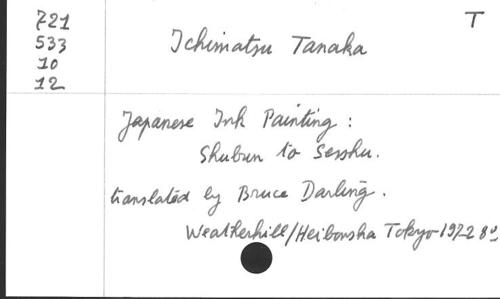 721
533
10
12
T
Ichimatsu Tanaka
Japanese Ink Painting :
Shubun to Sesshu.
translated by Bruce Darling.
Weatherhill/Heibonsha Tokyo 1972 8º